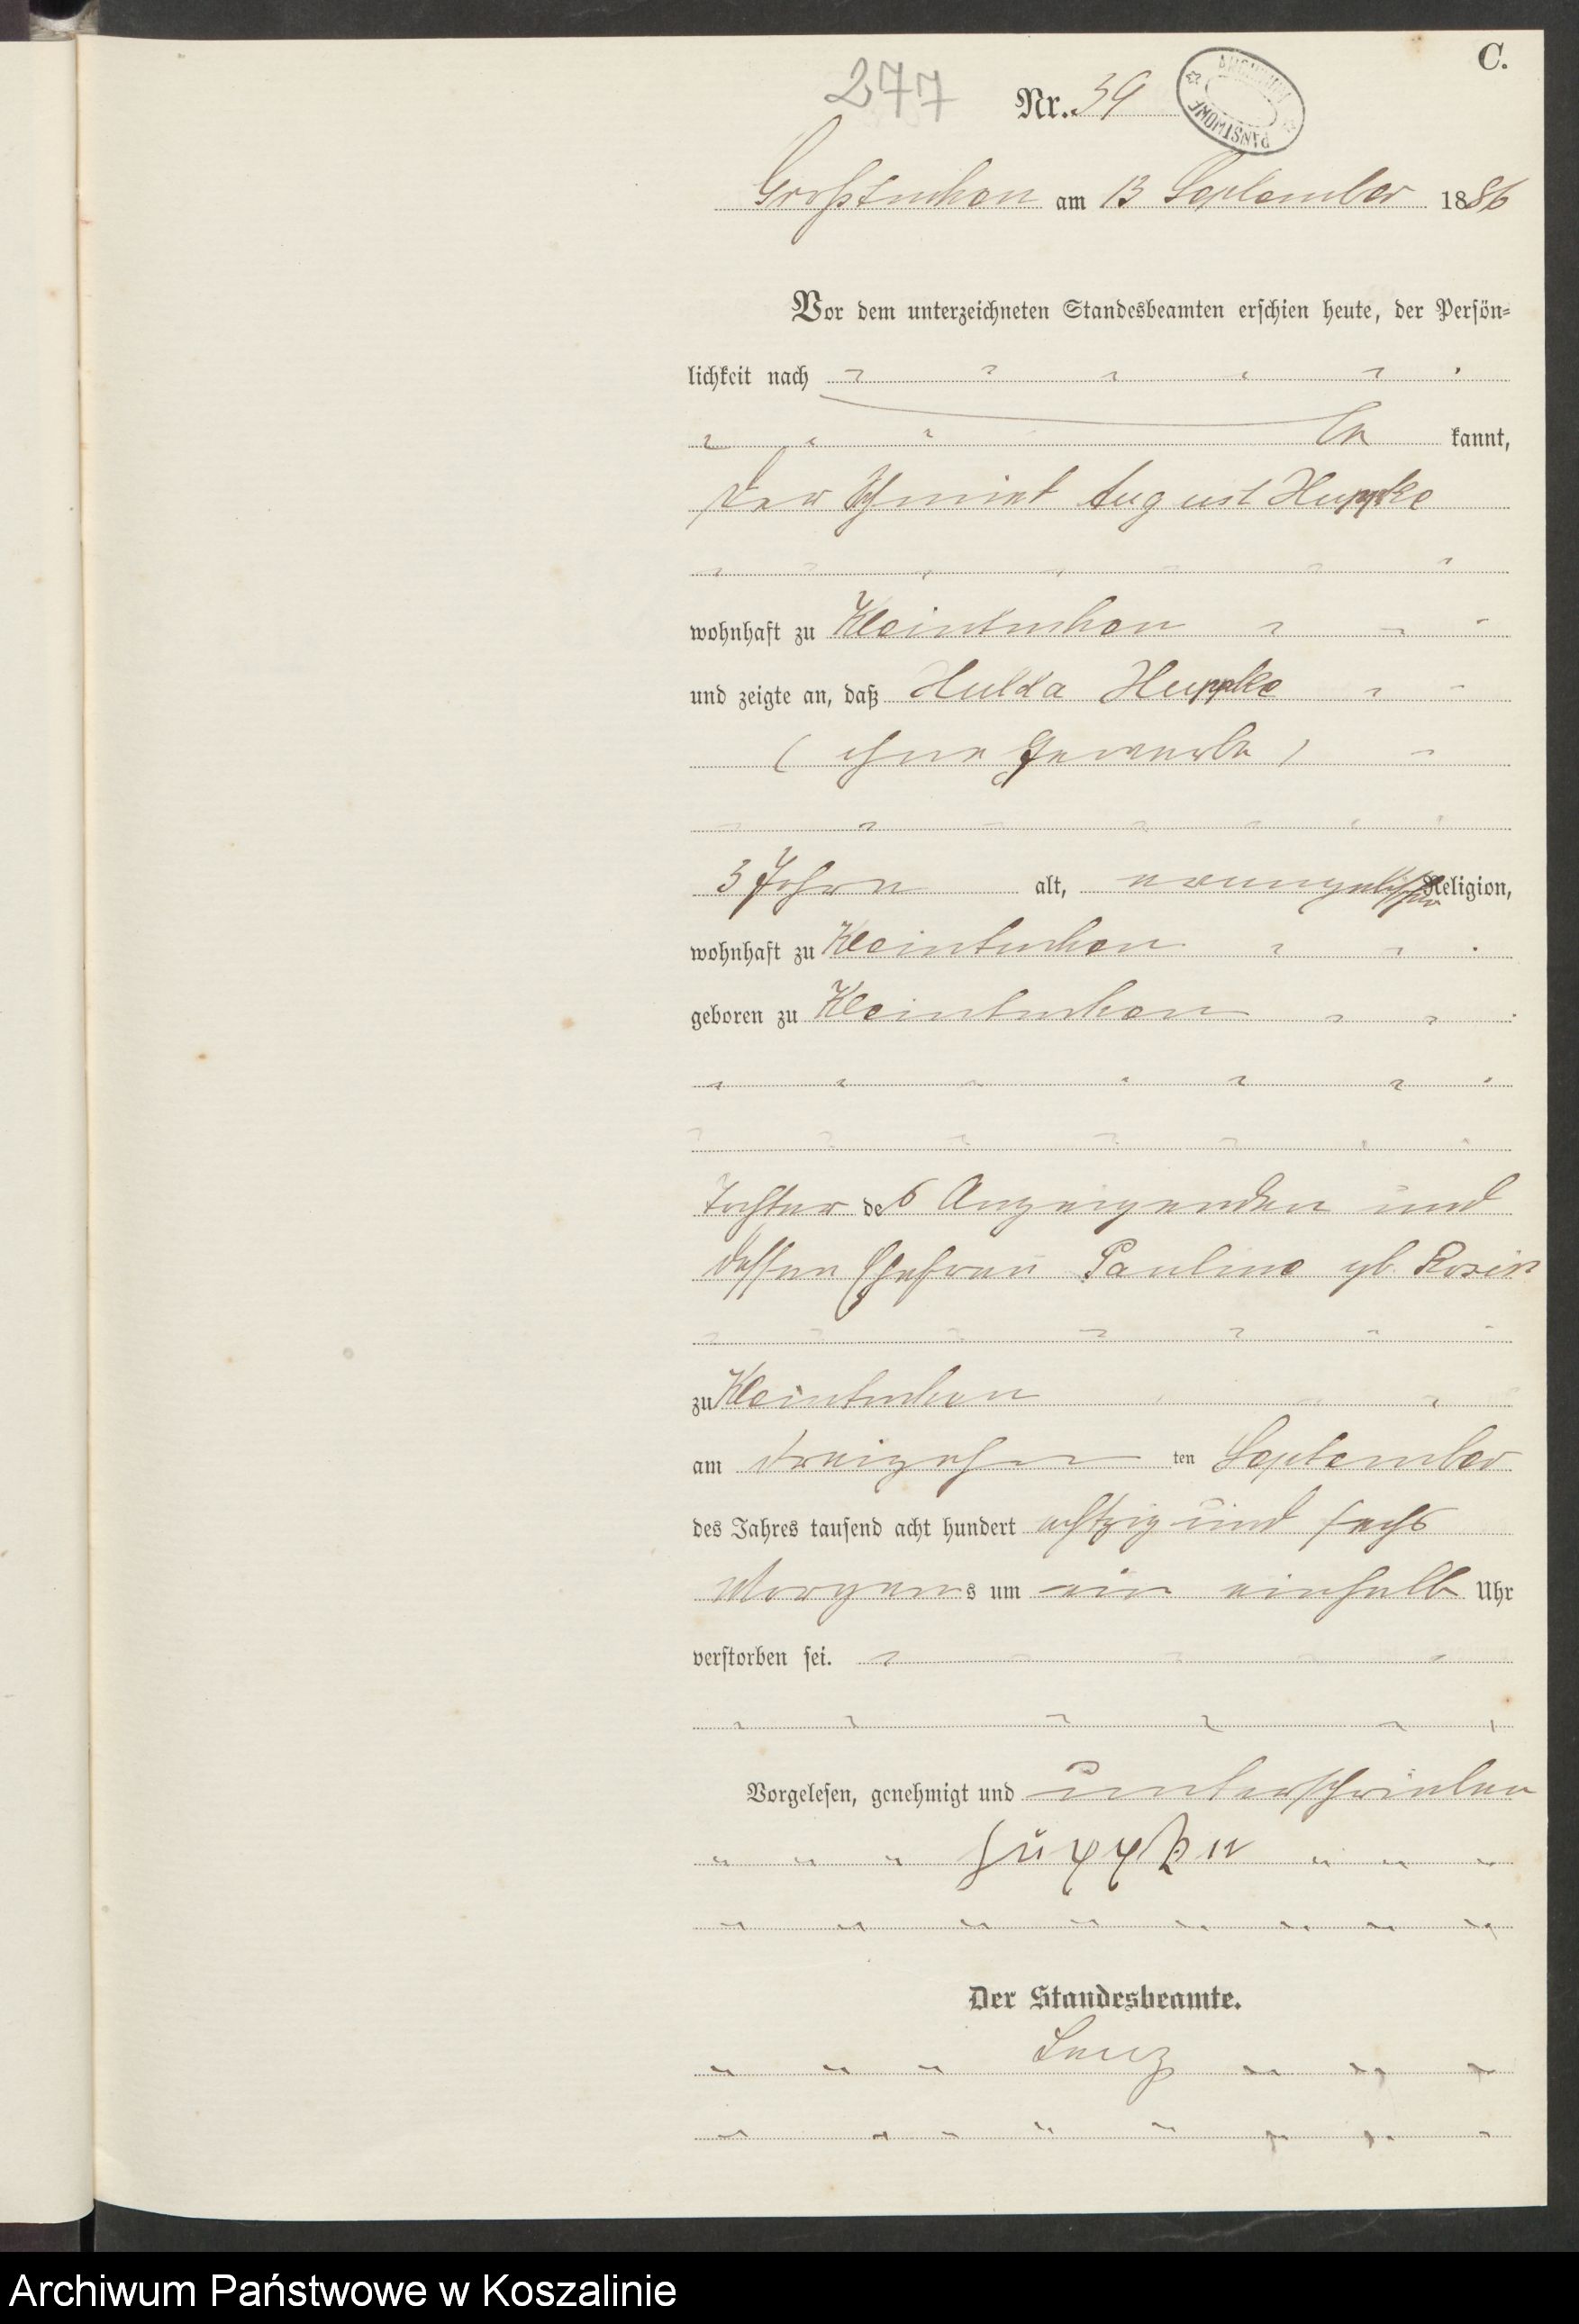 C.
277
Nr. 39
ARCHIWUM PAŃSTWOWE
Großtuchen am 13 September 1886
Vor dem unterzeichneten Standesbeamten erschien heute, der Persön-
lichkeit nach
be kannt,
der August Huppke
wohnhaft zu Kleintuchen
und zeigte an, daß Hulda Huppke
( ohne Gewerbe )
3 Jahre alt, evangelischer Religion,
wohnhaft zu Kleintuchen
geboren zu Kleintuchen
Tochter des Anzeigenden und
dessen Ehefrau Pauline gb. Rosin
zu Kleintuchen
am dreizehn ten September
des Jahres tausend acht hundert achtzig und sechs
Morgens um ein einhalb Uhr
verstorben sei.
Vorgelesen, genehmigt und unterschrieben
Huppke
Der Standesbeamte.
Archiwum Państwowe w Koszalinie